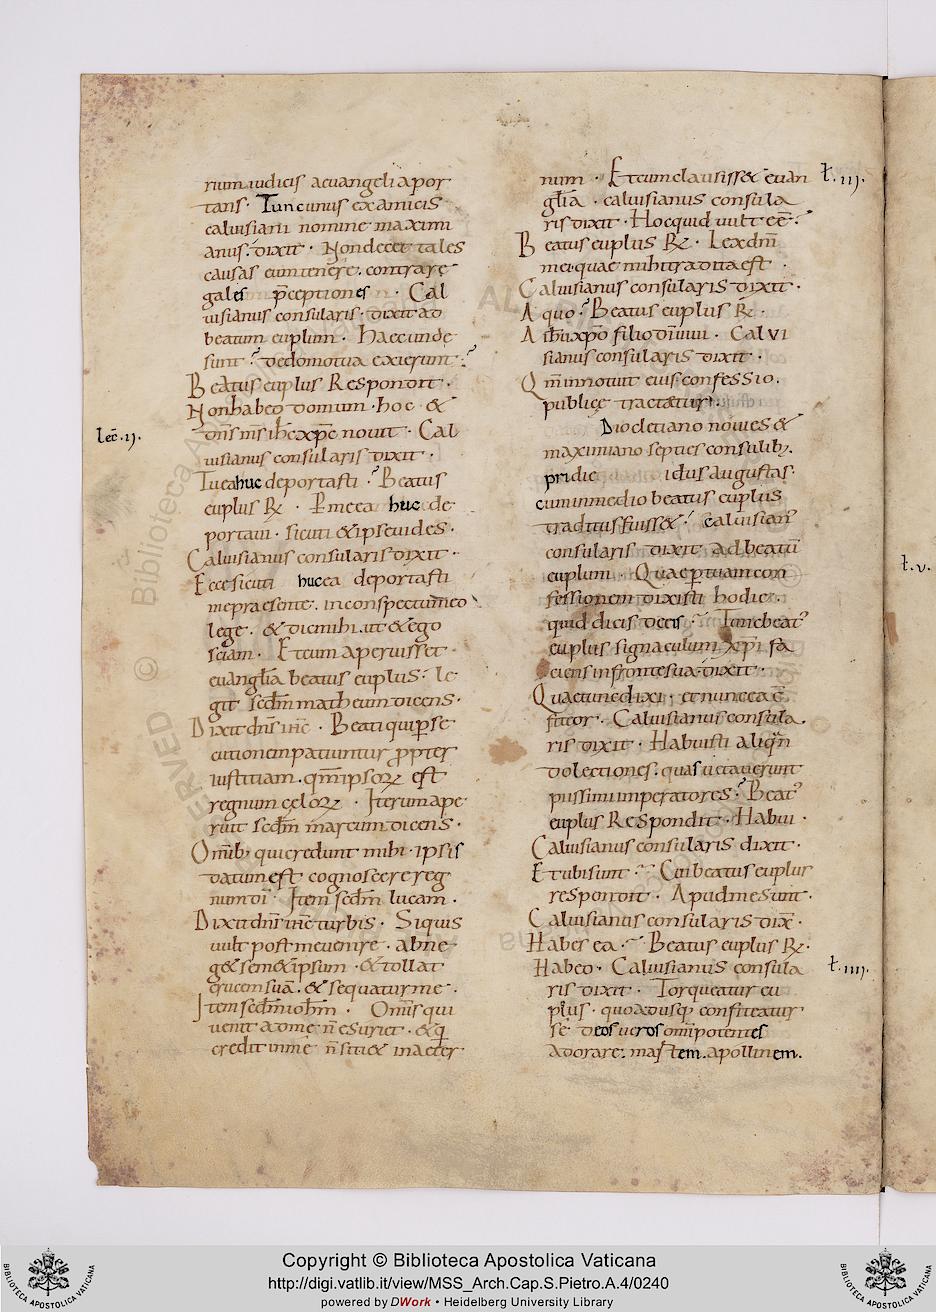 rium iudicis aeuangelia por
tans · Tunc unus ex amicis
caluisiani nomine maximi
anus · dixit · Non decet tales
causas eum tenere · contra re
gales p̄ceptiones · Cal
uisianus consularis · dixit ad
beatum euplum · Haec unde
sunt · de domo tua exierunt ·
Beatus euplus Respondit ·
Non habeo domum · hoc &
dn̄s ms ih̄c xp̄c nouit · Cal
lec̄ · ii ·
uisianus consularis dixit ·
Tu ea huc deportasti · Beatus
euplus R · P me ea huc de
portaui · sicuti & ipse uides ·
Caluisianus consularis dixit ·
Ecce sicuti huc ea deportasti
me praesente · in conspectu meo
lege · & dic mihi · ut & ego
sciam · Et cum aperuisset
euanglīa beatus euplus · le
git sedm̄ matheum dicens ·
Dixit dn̄s ih̄c · Beati qui pse
cutionem patiuntur ppter
iustitiam · qm̄ ipsoꝝ est
regnum cęloꝝ · Iterum ape
ruit sedm̄ marcum dicens ·
Omib; qui credunt mihi · ipsis
datum est cognoscere reg
num dī · Item sedm̄ lucam ·
Dixit dn̄s ih̄c turbis · Si quis
uult post me uenire · abne
g& sem&ipsum · & tollat
crucem suā · & sequatur me ·
Item sedm̄ ioh̄m · Om̄s qui
uenit ad me n̄ esuriet · & q
credit in me n̄ siti& in aeter
num · Et cum clausiss& euan
ł · iii ·
glīa · caluisianus consula
ris dixit · Hoc quid uult eē ·
Beatus euplus R · Lex dn̄i
mei quae mihi tradita est ·
Caluisianus consularis dixit ·
A quo · Beatus euplus R ·
A ih̄u xp̄o filio dī uiui · Calvi
sianus consularis dixit ·
Qm̄ innotuit eius confessio ·
publicę tractatur ·
Diocletiano nouies &
maximiano septies consulib; ·
pridie idus augustas ·
cum in medio beatus euplus
traditus fuiss& · Caluisian'
consularis dixit ad beatū
euplum · Quae p tuam con
fessionem dixisti hodie ·
quid dicis de eis · Tunc beat'
euplus signaculum xp̄i fa
ciens in fronte sua · dixit ·
Quae tunc dixi · et nunc ea c̄
fiteor · Caluisianus consula
ris dixit · Habuisti aliqn̄
do lectiones · quas uetauerunt
piissimi imperatores · Beat'
euplus Respondit · Habui ·
Caluisianus consularis dixit ·
Et ubi sunt · Cui beatus euplus
respondit · Apud me sunt ·
Caluisianus consularis dix̄ ·
Habes ea · Beatus euplus R ·
Habeo · Caluisianus consula
ł · iiii ·
ris dixit · Torqueatur eu
plus · quo adusq; confiteatur
se deos ueros omīpotentes
adorare · martem · apollinem ·
ł · v ·
Copyright © Biblioteca Apostolica Vaticana
http://digi.vatlib.it/view/MSS_Arch.Cap.S.Pietro.A.4/0240
powered by DWork • Heidelberg University Library
BIBLIOTECA APOSTOLICA VATICANA
BIBLIOTECA APOSTOLICA VATICANA